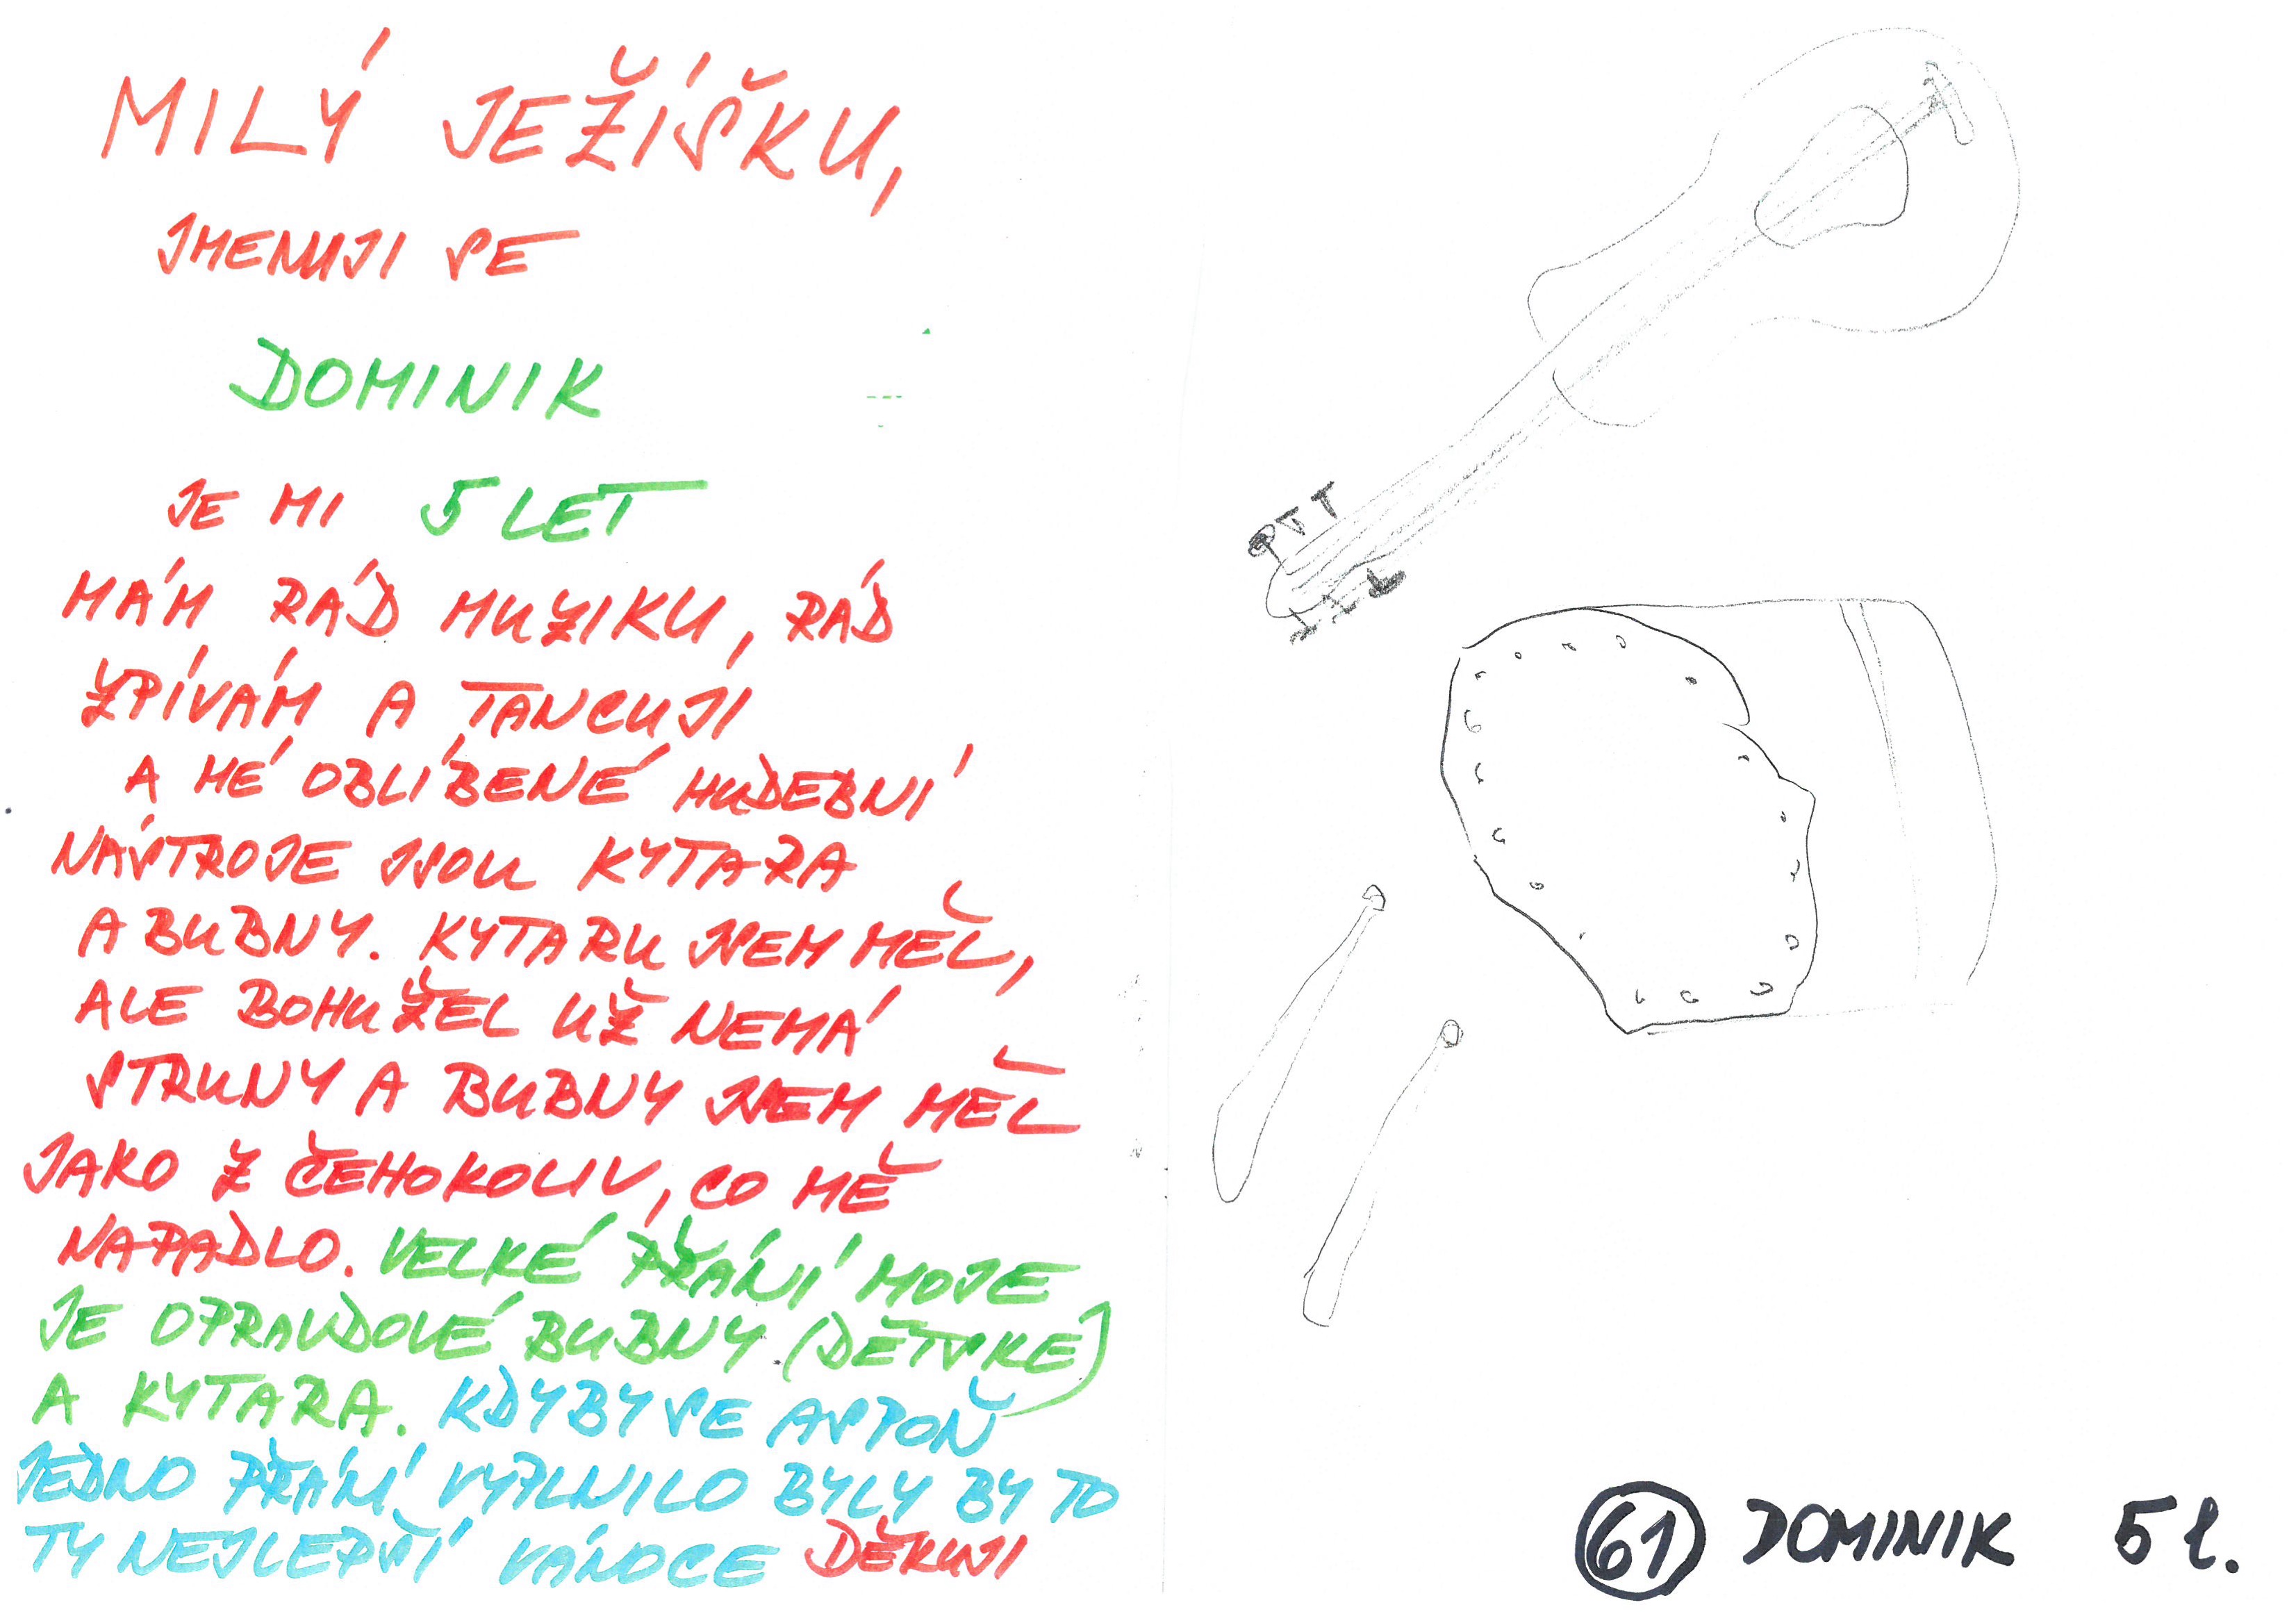 MILÝ JEŽÍŠKU,
JMENUJI SE
DOMINIK
JE MI 5 LET
MÁM RÁD MUZIKU, RÁD
ZPÍVÁM A TANCUJÍ
A MÉ OBLÍBENÉ HUDEBNÍ
NÁSTROJE JSOU KYTARA
A BUBNY. KYTARU JSEM MĚL,
ALE BOHUŽEL UŽ NEMÁ
STRUNY A BUBNY JSEM MĚL
JAKO Z ČEHOKOLIV, CO MĚ
NAPADLO. VELKÉ PŘÁNÍ MOJE
JE OPRAVDOVÉ BUBNY (DĚTSKE)
A KYTARA. KDYBY SE ASPOŇ
JEDNO PŘÁNÍ VYPLNILO BYLY BY TO
TY NEJLEPŠÍ VÁNOCE DĚKUJI
61 DOMINIK 5 l.